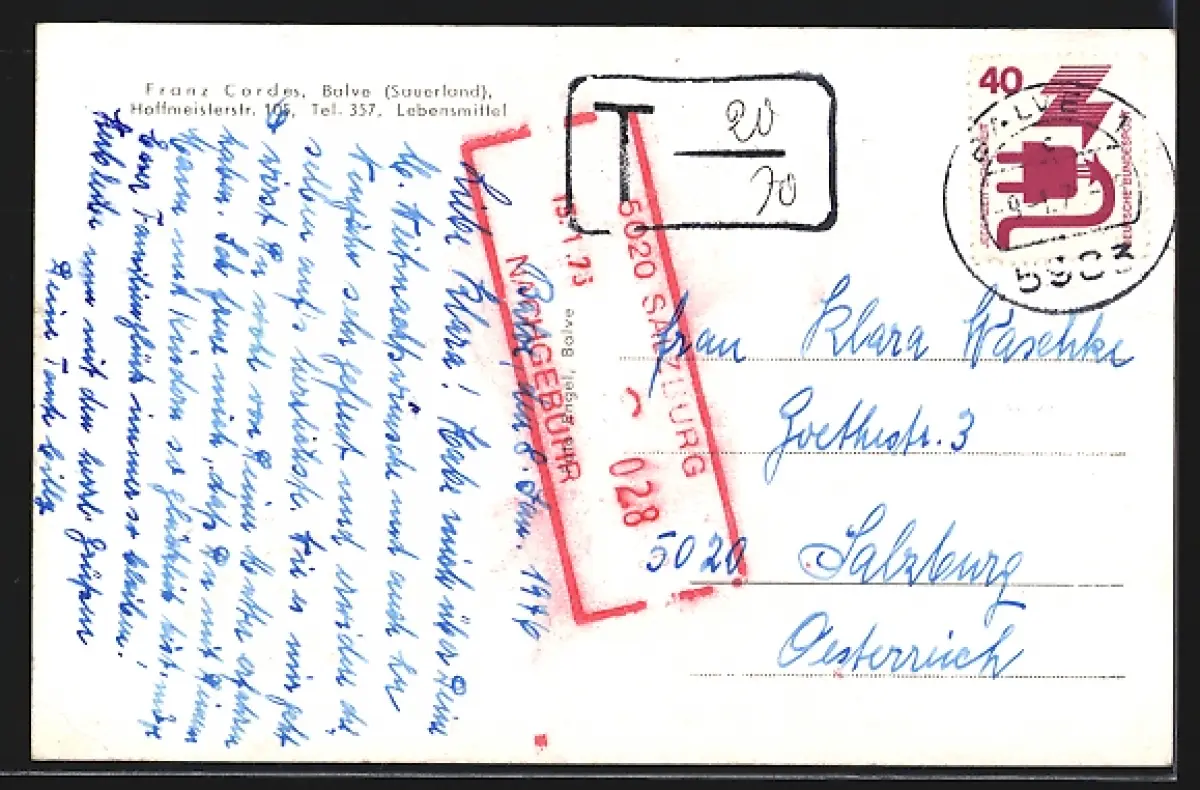 Franz Cordes, Balve (Sauerland),
Hoffmeisterstr. 105, Tel. 357, Lebensmittel
Balve, den 8. Jan. 1976
Liebe Klara! Habe mich über Deine
lb. Weihnachtswünsche und auch
sehr gefreut und erwidere die
selben auf's herzlichste. Wie es mir geht
wirst Du wohl von Deiner Mutter erfahren
haben. Ich freue mich, daß Du mit Deinem
Mann und Kindern so glücklich bist, möge
Euer Familienglück immer so bleiben!
nun mit den herzl. Grüßen
Deine Tante Cilly
Engel, Balve
T 20
70
5020 SALZBURG
028
NACHGEBÜHR
40
DEUTSCHE BUNDESPOST
BALVE 1
5903
Frau Klara Waschke
Goethestr. 3
5020 Salzburg
Oesterreich